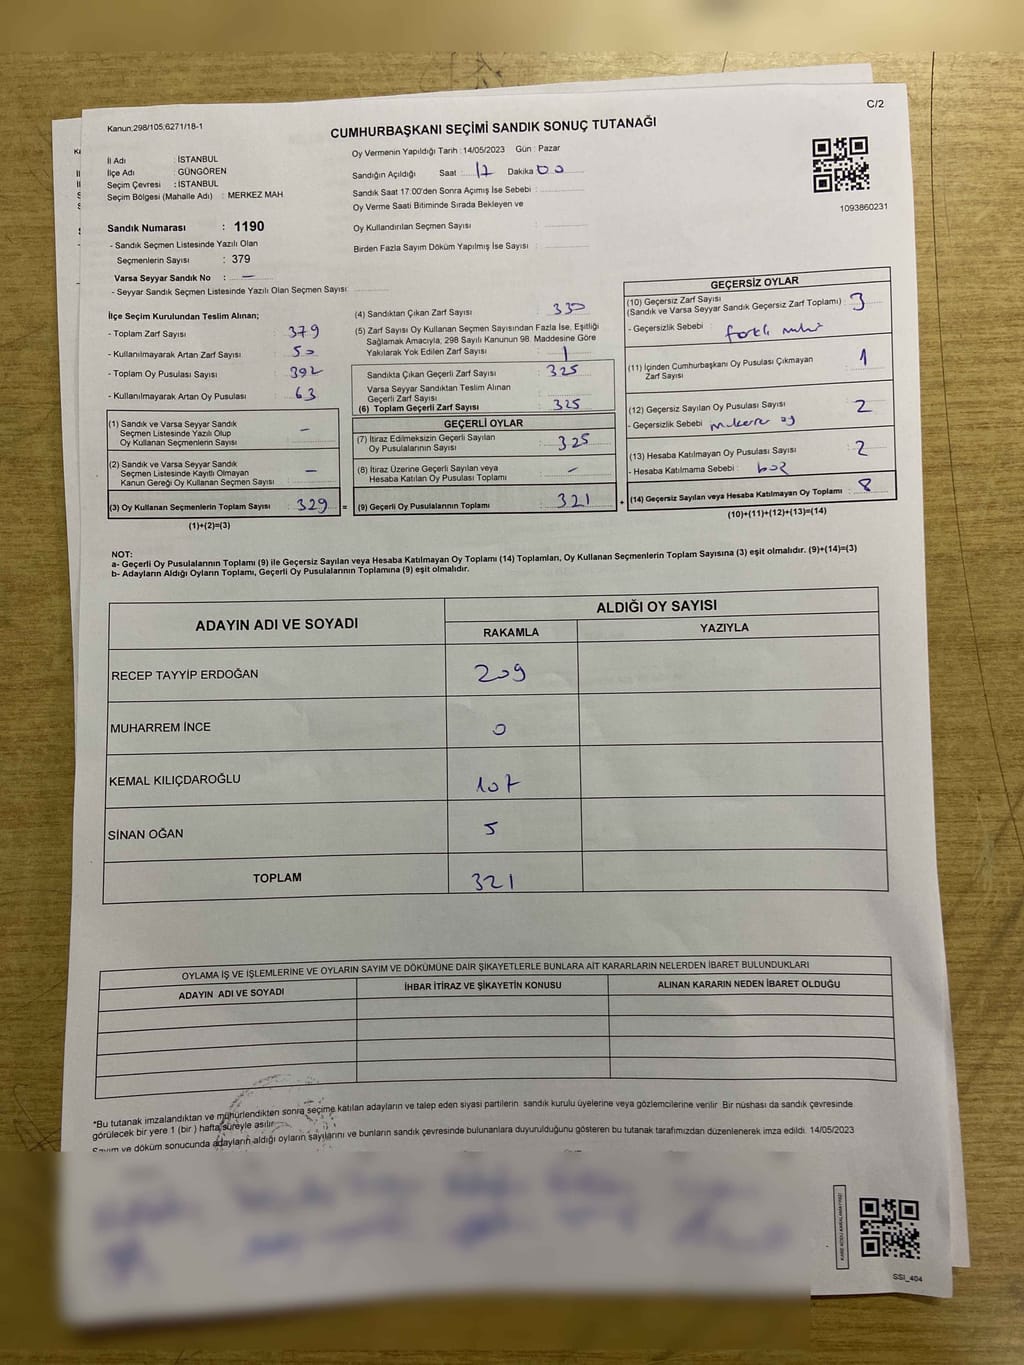 C/2
Kanun:298/105;6271/18-1
CUMHURBAŞKANI SEÇİMİ SANDIK SONUÇ TUTANAĞI
İl Adı : İSTANBUL
İlçe Adı : GÜNGÖREN
Seçim Çevresi : İSTANBUL
Seçim Bölgesi (Mahalle Adı) : MERKEZ MAH
Oy Vermenin Yapıldığı Tarih : 14/05/2023 Gün : Pazar
Sandığın Açıldığı Saat : 17 Dakika 00
Sandık Saat 17:00'den Sonra Açımış İse Sebebi :
Oy Verme Saati Bitiminde Sırada Bekleyen ve
Oy Kullandırılan Seçmen Sayısı :
Birden Fazla Sayım Döküm Yapılmış İse Sayısı :
1093860231
Sandık Numarası : 1190
- Sandık Seçmen Listesinde Yazılı Olan
Seçmenlerin Sayısı : 379
Varsa Seyyar Sandık No : —
- Seyyar Sandık Seçmen Listesinde Yazılı Olan Seçmen Sayısı:
İlçe Seçim Kurulundan Teslim Alınan;
- Toplam Zarf Sayısı : 379
- Kullanılmayarak Artan Zarf Sayısı : 50
- Toplam Oy Pusulası Sayısı : 392
- Kullanılmayarak Artan Oy Pusulası : 63
(1) Sandık ve Varsa Seyyar Sandık
Seçmen Listesinde Yazılı Olup
Oy Kullanan Seçmenlerin Sayısı : —
(2) Sandık ve Varsa Seyyar Sandık
Seçmen Listesinde Kayıtlı Olmayan
Kanun Gereği Oy Kullanan Seçmen Sayısı : —
(3) Oy Kullanan Seçmenlerin Toplam Sayısı : 329 =
(1)+(2)=(3)
(4) Sandıktan Çıkan Zarf Sayısı : 330
(5) Zarf Sayısı Oy Kullanan Seçmen Sayısından Fazla İse, Eşitliği
Sağlamak Amacıyla; 298 Sayılı Kanunun 98. Maddesine Göre
Yakılarak Yok Edilen Zarf Sayısı : 1
Sandıkta Çıkan Geçerli Zarf Sayısı : 325
Varsa Seyyar Sandıktan Teslim Alınan
Geçerli Zarf Sayısı :
(6) Toplam Geçerli Zarf Sayısı : 325
GEÇERLİ OYLAR
(7) İtiraz Edilmeksizin Geçerli Sayılan
Oy Pusulalarının Sayısı : 325
(8) İtiraz Üzerine Geçerli Sayılan veya
Hesaba Katılan Oy Pusulası Toplamı : —
(9) Geçerli Oy Pusulalarının Toplamı : 321 +
GEÇERSİZ OYLAR
(10) Geçersiz Zarf Sayısı
(Sandık ve Varsa Seyyar Sandık Geçersiz Zarf Toplamı) : 3
- Geçersizlik Sebebi : farklı
(11) İçinden Cumhurbaşkanı Oy Pusulası Çıkmayan
Zarf Sayısı : 1
(12) Geçersiz Sayılan Oy Pusulası Sayısı : 2
- Geçersizlik Sebebi : oy
(13) Hesaba Katılmayan Oy Pusulası Sayısı : 2
- Hesaba Katılmama Sebebi : boş
(14) Geçersiz Sayılan veya Hesaba Katılmayan Oy Toplamı : 8
(10)+(11)+(12)+(13)=(14)
NOT:
a- Geçerli Oy Pusulalarının Toplamı (9) ile Geçersiz Sayılan veya Hesaba Katılmayan Oy Toplamı (14) Toplamları, Oy Kullanan Seçmenlerin Toplam Sayısına (3) eşit olmalıdır. (9)+(14)=(3)
b- Adayların Aldığı Oyların Toplamı, Geçerli Oy Pusulalarının Toplamına (9) eşit olmalıdır.
ADAYIN ADI VE SOYADI ALDIĞI OY SAYISI
RAKAMLA YAZIYLA
RECEP TAYYİP ERDOĞAN 209
MUHARREM İNCE 0
KEMAL KILIÇDAROĞLU 107
SİNAN OĞAN 5
TOPLAM 321
OYLAMA İŞ VE İŞLEMLERİNE VE OYLARIN SAYIM VE DÖKÜMÜNE DAİR ŞİKAYETLERLE BUNLARA AİT KARARLARIN NELERDEN İBARET BULUNDUKLARI
ADAYIN ADI VE SOYADI İHBAR İTİRAZ VE ŞİKAYETİN KONUSU ALINAN KARARIN NEDEN İBARET OLDUĞU
*Bu tutanak imzalandıktan ve mühürlendikten sonra seçime katılan adayların ve talep eden siyasi partilerin sandık kurulu üyelerine veya gözlemcilerine verilir Bir nüshası da sandık çevresinde
görülecek bir yere 1 (bir ) hafta süreyle asılır
Sayım ve döküm sonucunda adayların aldığı oyların sayılarını ve bunların sandık çevresinde bulunanlara duyurulduğunu gösteren bu tutanak tarafımızdan düzenlenerek imza edildi. 14/05/2023
KARE KODU KARALAMAYINIZ!
SSI_404